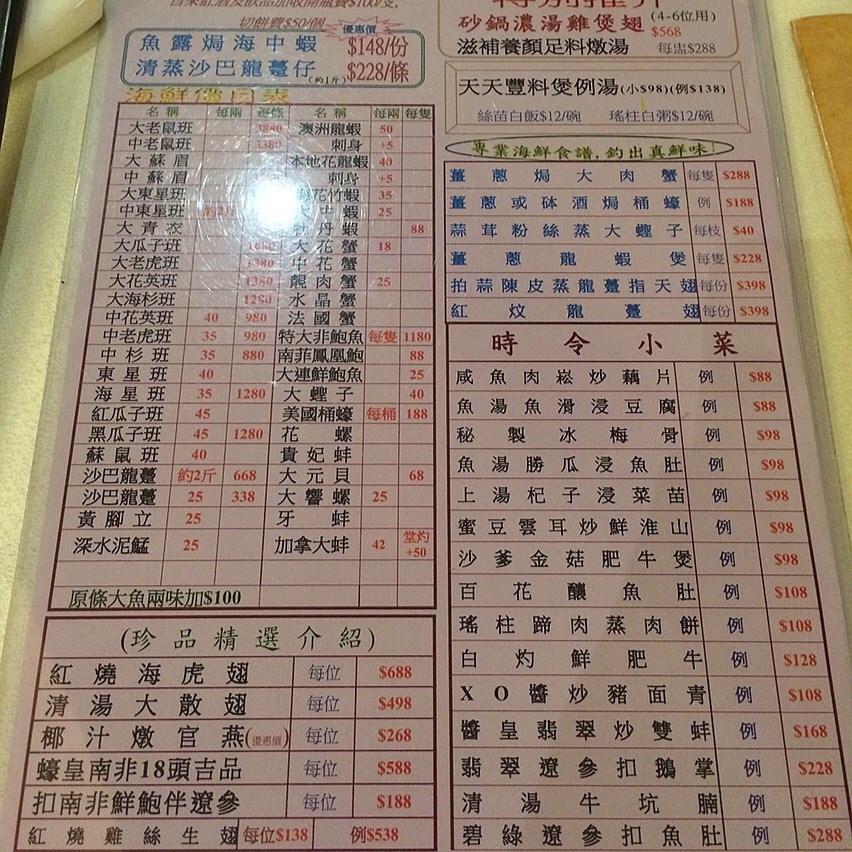 自來紅酒及飲品加收開瓶費$100/支,
切餅費$50/個
優惠價
魚露焗海中蝦 $148/份
清蒸沙巴龍躉仔(約1斤) $228/條
海鮮價目表
名稱 每兩 每條 名稱 每兩 每隻
大老鼠班 3880 澳洲龍蝦 50
中老鼠班 3380 刺身 +5
大蘇眉 本地花龍蝦 40
中蘇眉 刺身 +5
大東星班 花竹蝦 35
中東星班 大中蝦 25
大青衣 牡丹蝦 88
大瓜子班 大花蟹 18
大老虎班 1380 中花蟹
大花英班 1380 靚肉蟹 25
大海杉班 1280 水晶蟹
中花英班 40 980 法國蟹
中老虎班 35 980 特大非鮑魚 每隻 1180
中杉班 35 880 南菲鳳凰鮑 88
東星班 40 大連鮮鮑魚 25
海星班 35 1280 大蟶子 40
紅瓜子班 45 美國桶蠔 每桶 188
黑瓜子班 45 1280 花螺
蘇鼠班 40 貴妃蚌
沙巴龍躉 約2斤 668 大元貝 68
沙巴龍躉 25 338 大響螺 25
黃腳立 25 牙蚌
深水泥鯭 25 加拿大蚌 42 堂灼+50
原條大魚兩味加$100
(珍品精選介紹)
紅燒海虎翅 每位 $688
清湯大散翅 每位 $498
椰汁燉官燕(優惠價) 每位 $268
蠔皇南非18頭吉品 每位 $588
扣南非鮮鮑伴遼參 每位 $188
紅燒雞絲生翅 每位$138 例$538
特別推介
砂鍋濃湯雞煲翅(4-6位用) $568
滋補養顏足料燉湯 每盅$288
天天豐料煲例湯(小$98)(例$138)
絲苗白飯$12/碗 瑤柱白粥$12/碗
專業海鮮食譜,釣出真鮮味
薑蔥焗大肉蟹 每隻 $288
薑蔥或砵酒焗桶蠔 例 $188
蒜茸粉絲蒸大蟶子 每枝 $40
薑蔥龍蝦煲 每隻 $228
拍蒜陳皮蒸龍躉指天翅 每份 $398
紅炆龍躉翅 每份 $398
時令小菜
咸魚肉崧炒藕片 例 $88
魚湯魚滑浸豆腐 例 $88
秘製冰梅骨 例 $98
魚湯勝瓜浸魚肚 例 $98
上湯杞子浸菜苗 例 $98
蜜豆雲耳炒鮮淮山 例 $98
沙爹金菇肥牛煲 例 $98
百花釀魚肚 例 $108
瑤柱蹄肉蒸肉餅 例 $108
白灼鮮肥牛 例 $128
XO醬炒豬面青 例 $108
醬皇翡翠炒雙蚌 例 $168
翡翠遼參扣鵝掌 例 $228
清湯牛坑腩 例 $188
碧綠遼參扣魚肚 例 $288